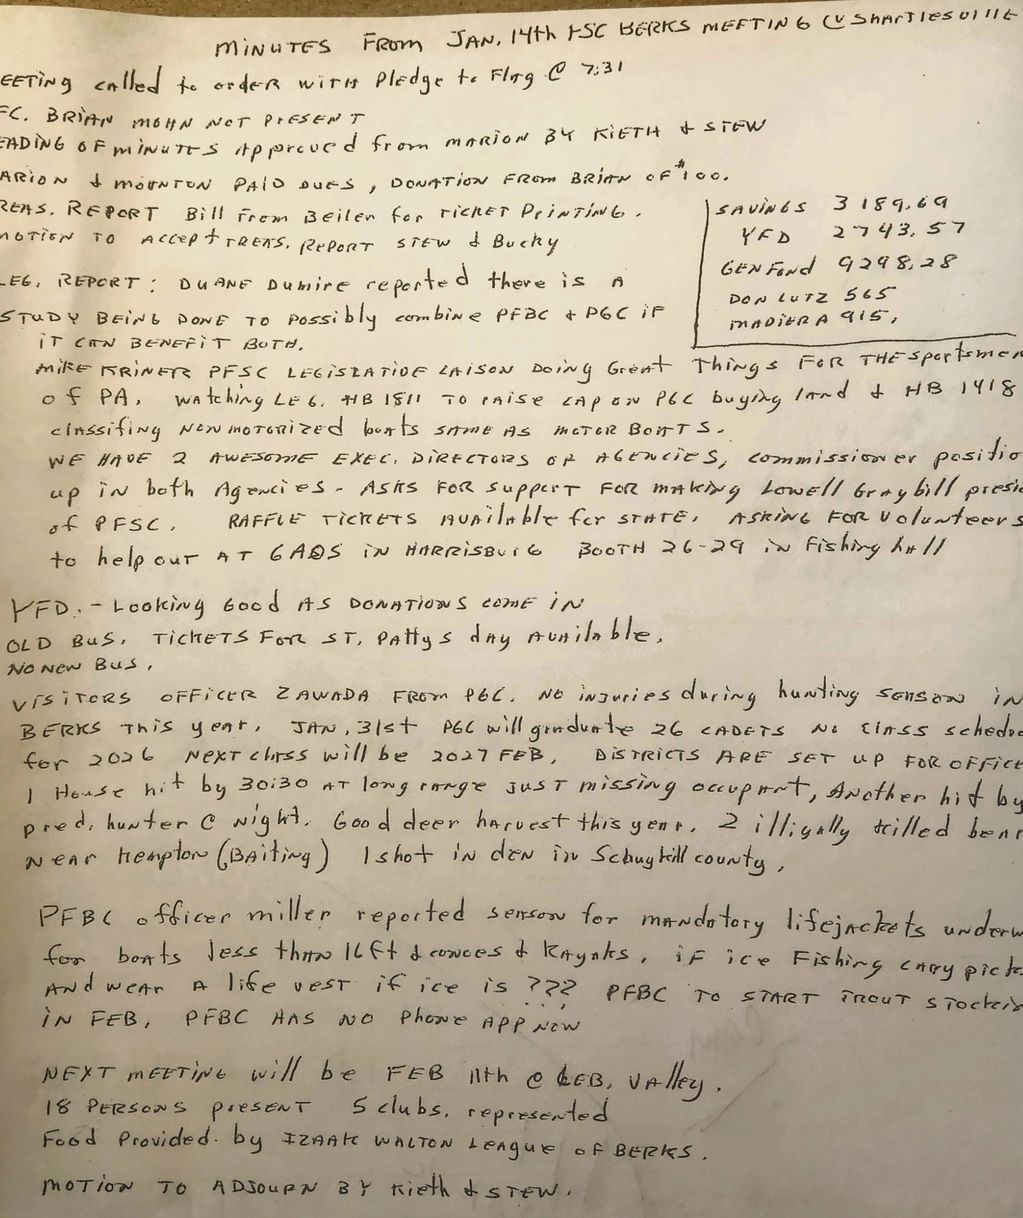 MINUTES FROM JAN. 14th FSC BERKS MEETING @ SHARTLESVILLE
EETING called to order WITH Pledge to Flag @ 7:31
EC. BRIAN MOHN NOT PRESENT
EADING OF MINUTES Approved from MARION BY KIETH & STEW
ARION & MOUNTON PAID DUES, DONATION FROM BRIAN OF $100.
REAS. REPORT Bill From Beiler for TICKET PRINTING.
MOTION TO Accept TREAS. REPORT STEW & Bucky
SAVINGS 3189.69
YFD 2743.57
GEN Fond 9298.28
DON LUTZ 565
MADIERA 915.
LEG. REPORT: DUANE Dumire reported there is A
STUDY BEING DONE TO Possibly combine PFBC & PGC iF
iT CAN BENEFIT BOTH.
MIKE KRINER PFSC LEGISTATIVE LAISON Doing Great Things FOR THE sportsmen
of PA. WATCHING LEG. HB 1811 TO raise CAP ON PGC buying land & HB 1418
classifing NON MOTORIZED boats SAME AS MOTOR BOATS.
WE HAVE 2 AWESOME EXEC. DIRECTORS OF AGENCIES, commissioner positio
up in both Agencies - ASKS FOR support FOR making Lowell Graybill presi
of PFSC. RAFFLE TICKETS AVAilable for STATE. ASKING FOR Volunteers
to help out AT GAOS iN HARRISBUIG BOOTH 26-29 in Fishing hall
YFD. - Looking Good AS DONATIONS COME IN
OLD BUS. TICKETS FOR ST. Pattys day AVAilable.
NO NEW BUS.
VISITORS OFFICER ZAWADA FROM PGC. NO injuries during hunting season in
BERKS This year. JAN. 31st PGC will graduate 26 CADETS No Class schedu
for 2026 NEXT class will be 2027 FEB. DISTRICTS ARE SET UP FOR OFFICE
1 House hit by 30:30 AT long range JUST missing occupant, Another hit by
pred. hunter @ Night. Good deer harvest this year. 2 illigally killed bear
Near Kempton (BAiting) 1 shot in den in Schuylkill county,
PFBC officer miller reported season for mandatory lifejackets underw
for boats less than 16ft & conoes & Kayaks. iF ice Fishing cary pick
And wear A life vest if ice is ??? PFBC TO START TROUT STOCKIN
IN FEB. PFBC HAS NO Phone APP NOW
NEXT MEETING will be FEB 11th @ LEB. VAlley.
18 PERSONS present 5 clubs. represented
Food Provided by IZAAK WALTON LEAGUE of BERKS.
MOTION TO ADJOURN BY Kieth & STEW.